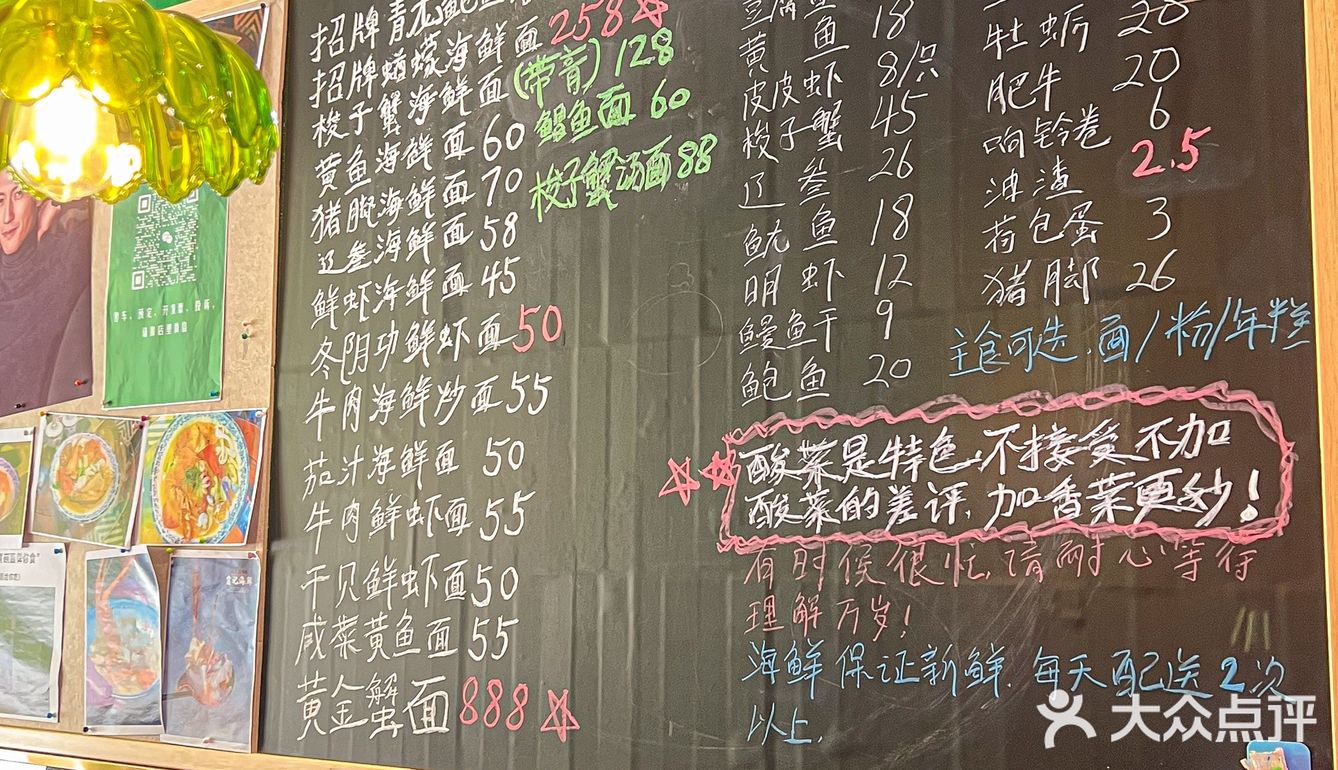 招牌青龙
招牌蝤蠓海鲜面 258
梭子蟹海鲜面(带膏) 128
黄鱼海鲜面 60
猪脚海鲜面 70
辽参海鲜面 58
鲜虾海鲜面 45
冬阴功鲜虾面 50
牛肉海鲜炒面 55
茄汁海鲜面 50
牛肉鲜虾面 55
干贝鲜虾面 50
咸菜黄鱼面 55
黄金蟹面 888
鲳鱼面 60
梭子蟹汤面 88
黄鱼 18
皮皮虾 8/只
梭子蟹 45
辽参 26
鱿鱼 18
明虾 12
鳗鱼干 9
鲍鱼 20
牡蛎 28
肥牛 20
响铃卷 6
油渣 2.5
荷包蛋 3
猪脚 26
主食可选.面/粉/年糕
酸菜是特色.不接受不加
酸菜的差评,加香菜更妙!
有时候很忙,请耐心等待
理解万岁!
海鲜保证新鲜.每天配送2次
以上.
大众点评